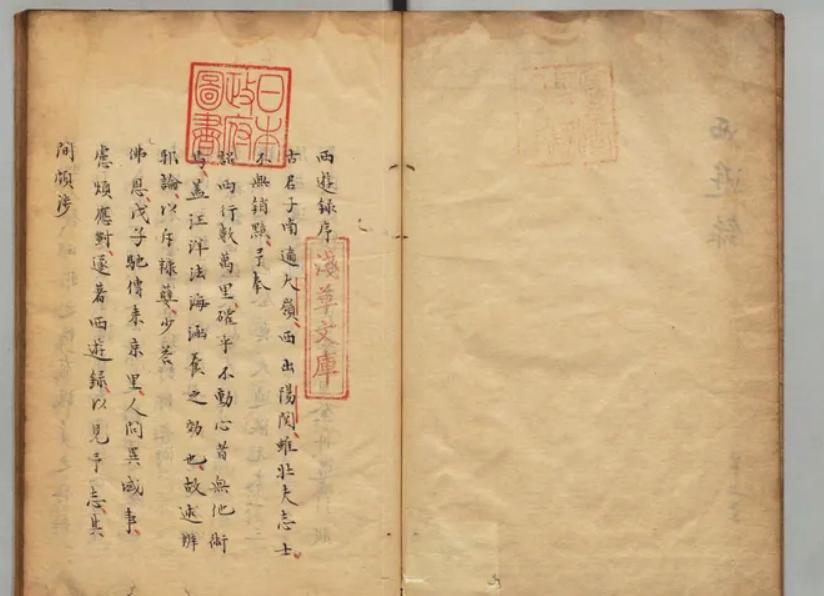 日本
政府
圖書
淺草文庫
西遊録序
古君子南逾大嶺西出陽関雖壯夫志士
不無銷黯予奉
詔西行數萬里確乎不動心者無他術
焉蓋汪洋法海涵養之効也故述辨
邪論以斥糠孽少荅
佛恩戊子馳傳来京里人問異域事
慮煩應對遂著西遊録以見予志其
間頗涉